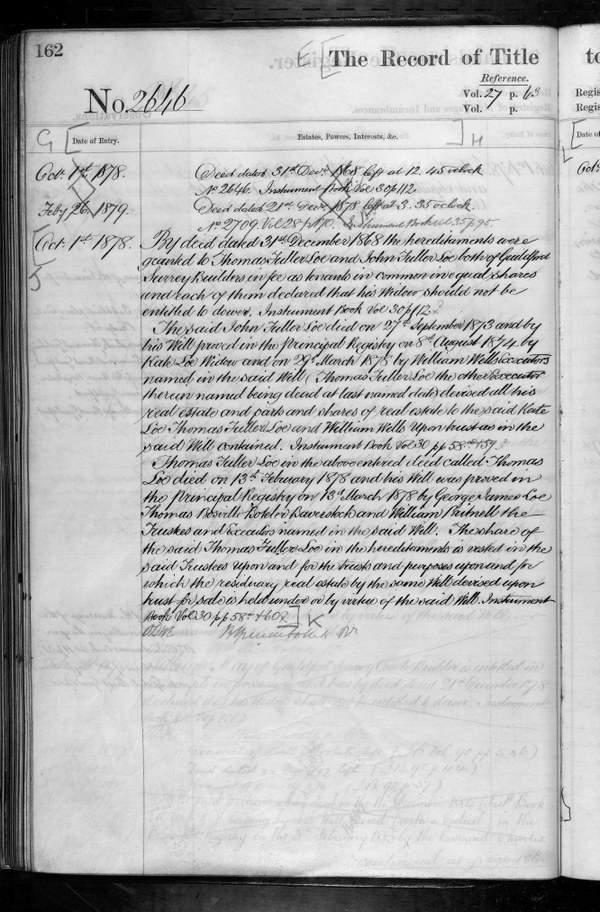 162
E [ The Record of Title to
Reference.
No. 2646 Vol. 27 p. 63
Vol. 7 p.
Regis
Regis
G [ Date of Entry. Estates, Powers, Interests, &c. ] H [ Date of
Oct. 1st 1878. Deed dated 31st Decr. 1868 left at 12.45 oclock
No 2646. Instrument Book Vol 30 p 112
Feby 26. 1879. Deed dated 21st Decr. 1878 left at 3.35 oclock
No 2709 Vol 28 p Instrument Book Vol 35 p 95.
Oct. 1st 1878. By deed dated 31st December 1868 the hereditaments were
J granted to Thomas Fuller Loe and John Fuller Loe both of Guildford
Surrey Builders in fee as tenants in common in equal shares
and each of them declared that his Widow should not be
entitled to dower. Instrument Book Vol 30 p 112
The said John Fuller Loe died on 27th September 1873 and by
his Will proved in the Principal Registry on 8th August 1874 by
Kate Loe Widow and on 29th March 1878 by William Wells Executors
named in the said Will (Thomas Fuller Loe the other Executor
therein named being dead at last named date) devised all his
real estate and parts and shares of real estate to the said Kate
Loe Thomas Fuller Loe and William Wells Upon trust as in the
said Will contained. Instrument Book Vol 30 pp 58 & 59
Thomas Fuller Loe in the above entered deed called Thomas
Loe died on 13th February 1878 and his Will was proved in
the Principal Registry on 13th March 1878 by George James Loe
Thomas Bosvill Botelor Baverstock and William Putnell the
Trustees and Executors named in the said Will. The share of
the said Thomas Fuller Loe in the hereditaments is vested in the
said Trustees Upon and for the trusts and purposes upon and for
which the residuary real estate by the same Will devised upon
trust for sale is held under or by virtue of the said Will. Instrument
Book Vol 30 pp 58 & 60 ] K